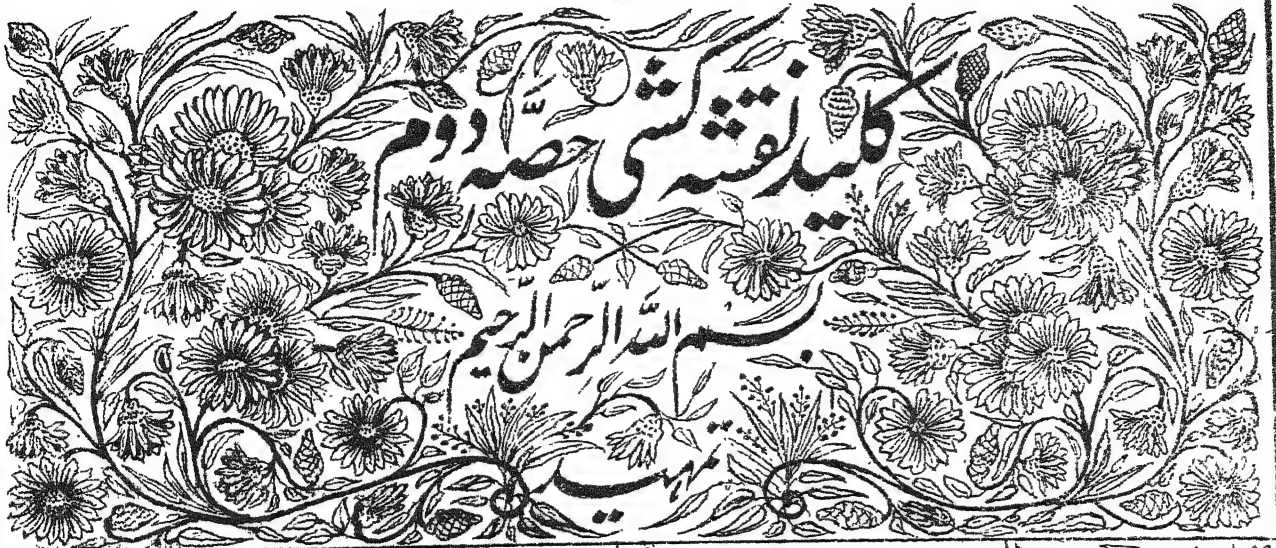 کلید نقشہ کشی حصّہ دوم
بسم اللہ الرّحمن الرّحیم
تمہید